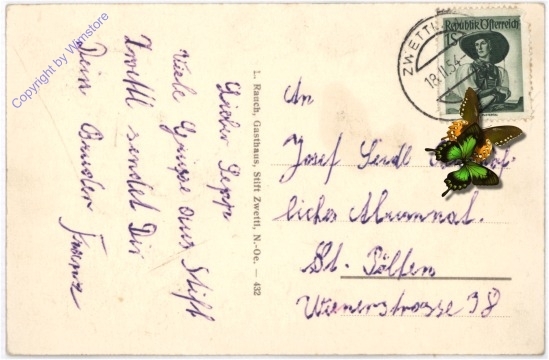 Copyright by Wimstore
Lieber Sepp
Viele Grüsse aus Stift
Zwettl sendet Dir
Dein Bruder Franz
L. Rauch, Gasthaus, Stift Zwettl, N.-Oe. — 432
Republik Österreich
1S
ZWETTL
18.11.54
An
Josef Seidl
liches Alumnat.
St. Pölten
Wienerstrasse 38